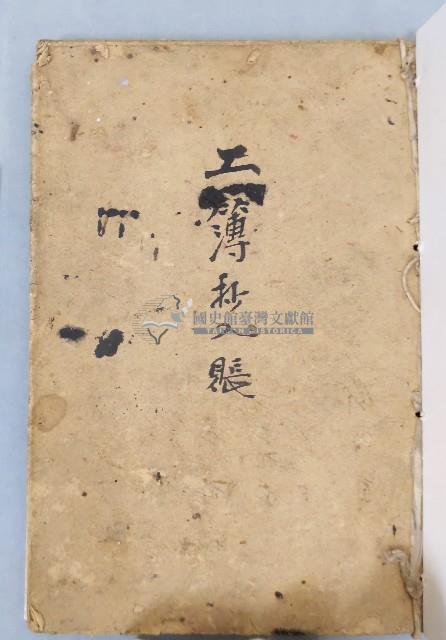 工簿利又賬
國史館臺灣文獻館
TAIWAN HISTORICA